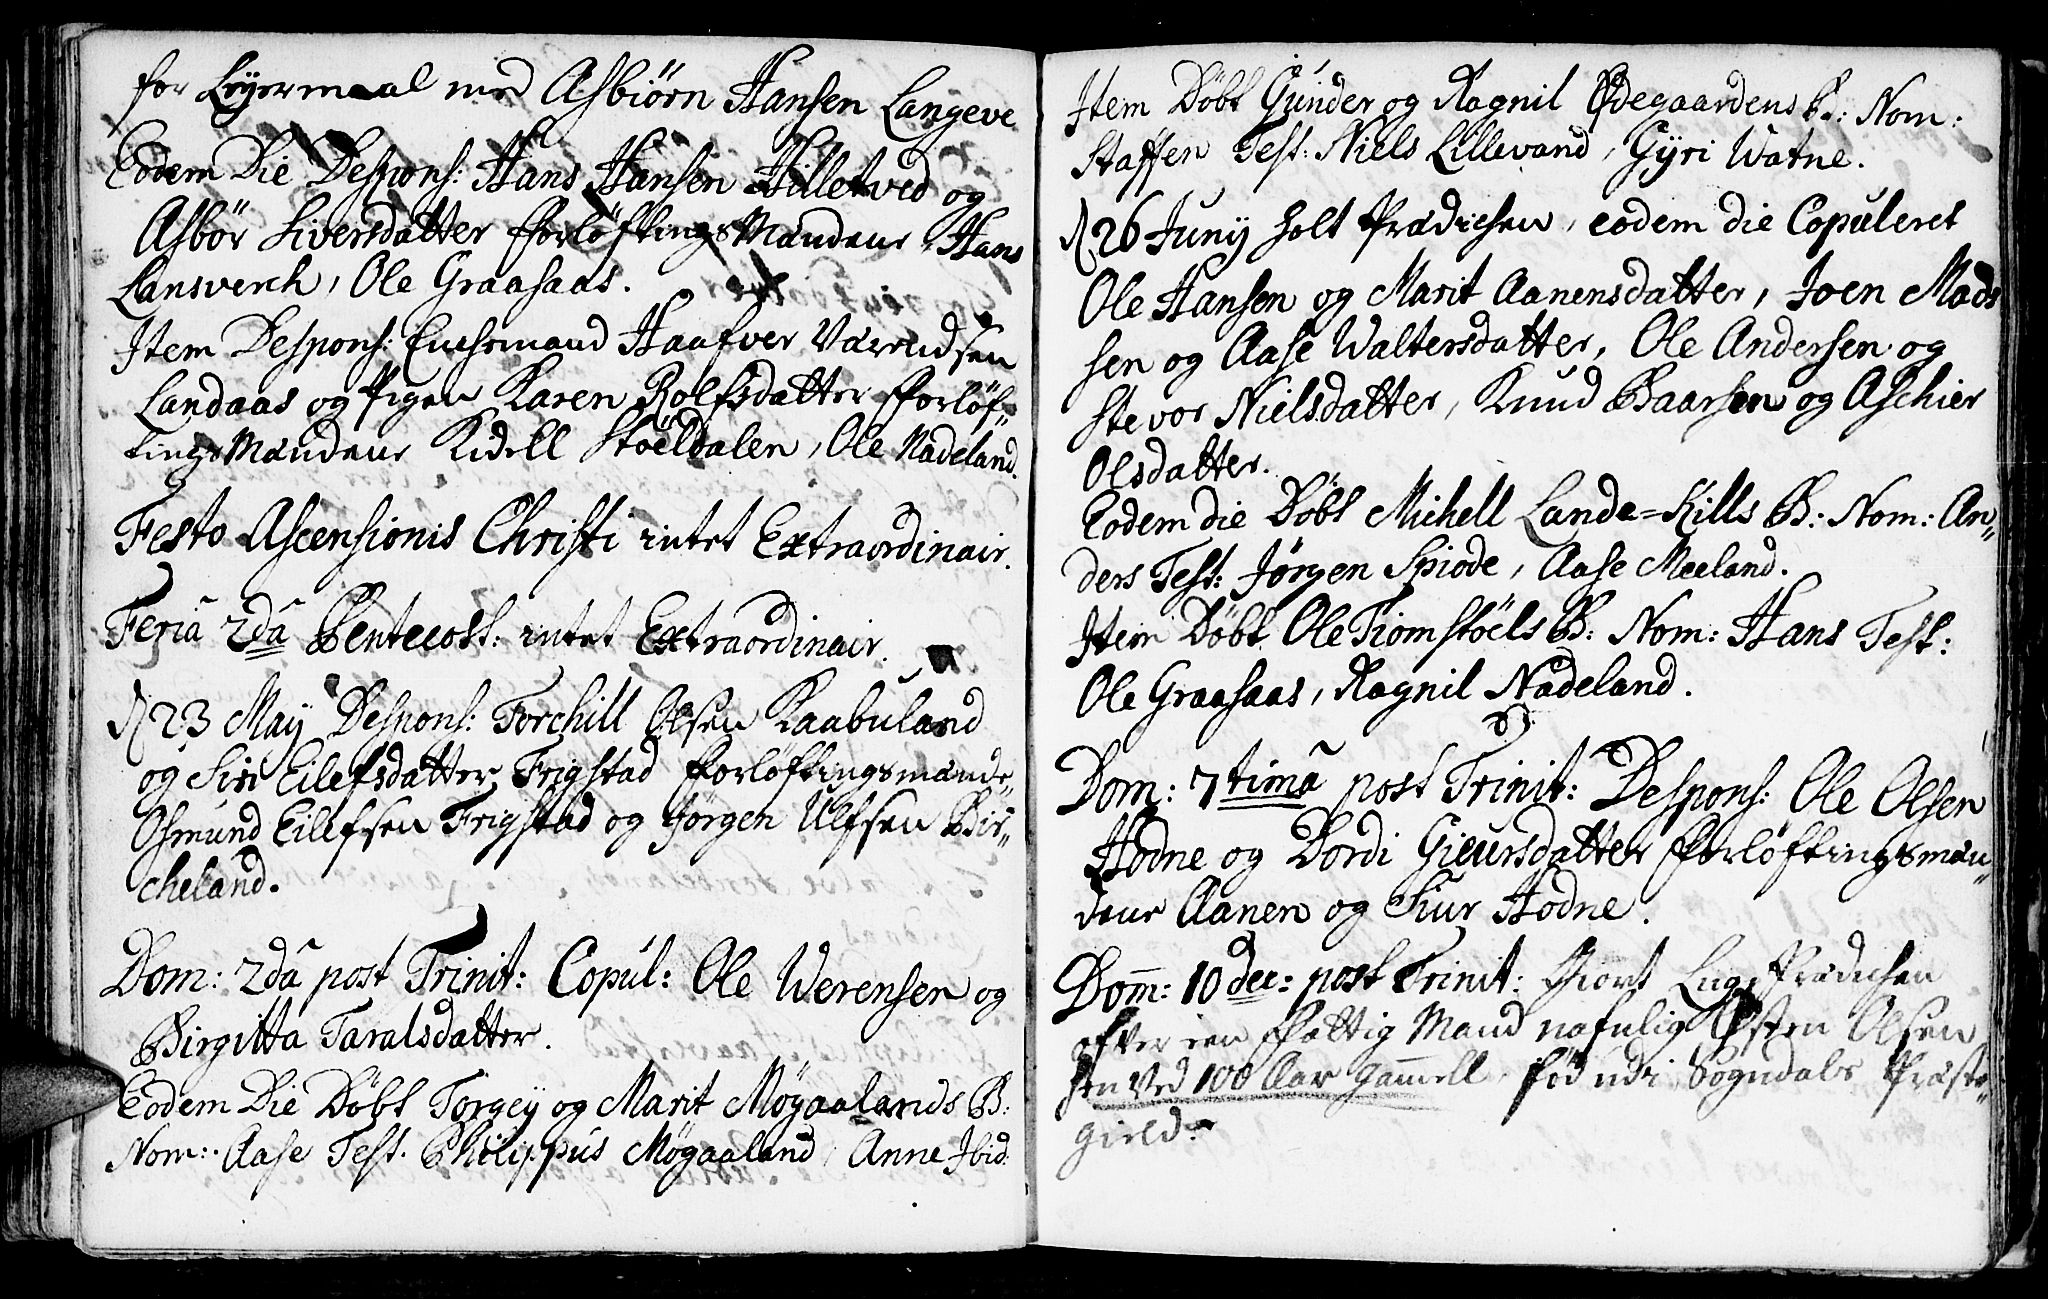 for Leyermaal med Asbiörn Hansen Langeve
Eodem Die Despons: Hans Hansen Hilletved og
Asbör Siversdatter Forløftings Mændene Hans
Lansverch, Ole Graasaas.
Item Despons: Enchemand Haafver
Landaas og Pigen Karen Rolfsdatter Forløf-
tings Mændene Kidell Stöeldalen, Ole Nadeland.
Festo Ascensionis Christi intet Extraordinair.
Feriâ 2dâ Pentecost: intet Extraordinair.
d 23 May Despons: Torchill Olsen Kaabuland
og Siri Eilefsdatter Frigstad Forløftingsmænde-
Osmund Eilefsen Frigstad og Jörgen Ulfsen Bir-
cheland.
Dom: 2dâ post Trinit: Copul: Ole Werensen og
Birgitta Taralsdatter.
Eodem Die Döbt Torgey og Marit Møgaalands B:
Nom: Aase Test. Philippus Møgaaland, Anne Ibid:
Item Döbt Gunder og Ragnil Ødegaardens B: Nom:
Staffen Test: Niels Lillevand, Gyri Watne.
d 26 Junij holt Prædichen, eodem die Copuleret
Ole Hansen og Marit Aanensdatter, Joen Mads
sen og Aase Waltersdatter, Ole Andersen og
Stevor Nielsdatter, Knud Baarsen og Aschier
Olsdatter.
Eodem die Döbt Michell Lande-Kills B: Nom: An-
ders Test: Jørgen Spiode, Aase Meeland.
Item Döbt Ole Tiomstöels B: Nom: Hans Test:
Ole Graasaas, Ragnil Nadeland.
Dom: 7timâ post Trinit: Despons: Ole Olsen
Hodne og Dordi Gieursdatter Forløftingsmæn-
dene Aanen og Siur Hodne.
Dom: 10dec: post Trinit: Giort Lig Prædichen
efter een Fattig Mand nafnlig Osten Olsen
hen Ved 100 Aar gammell, föd udi Sogndals Præste-
gield.